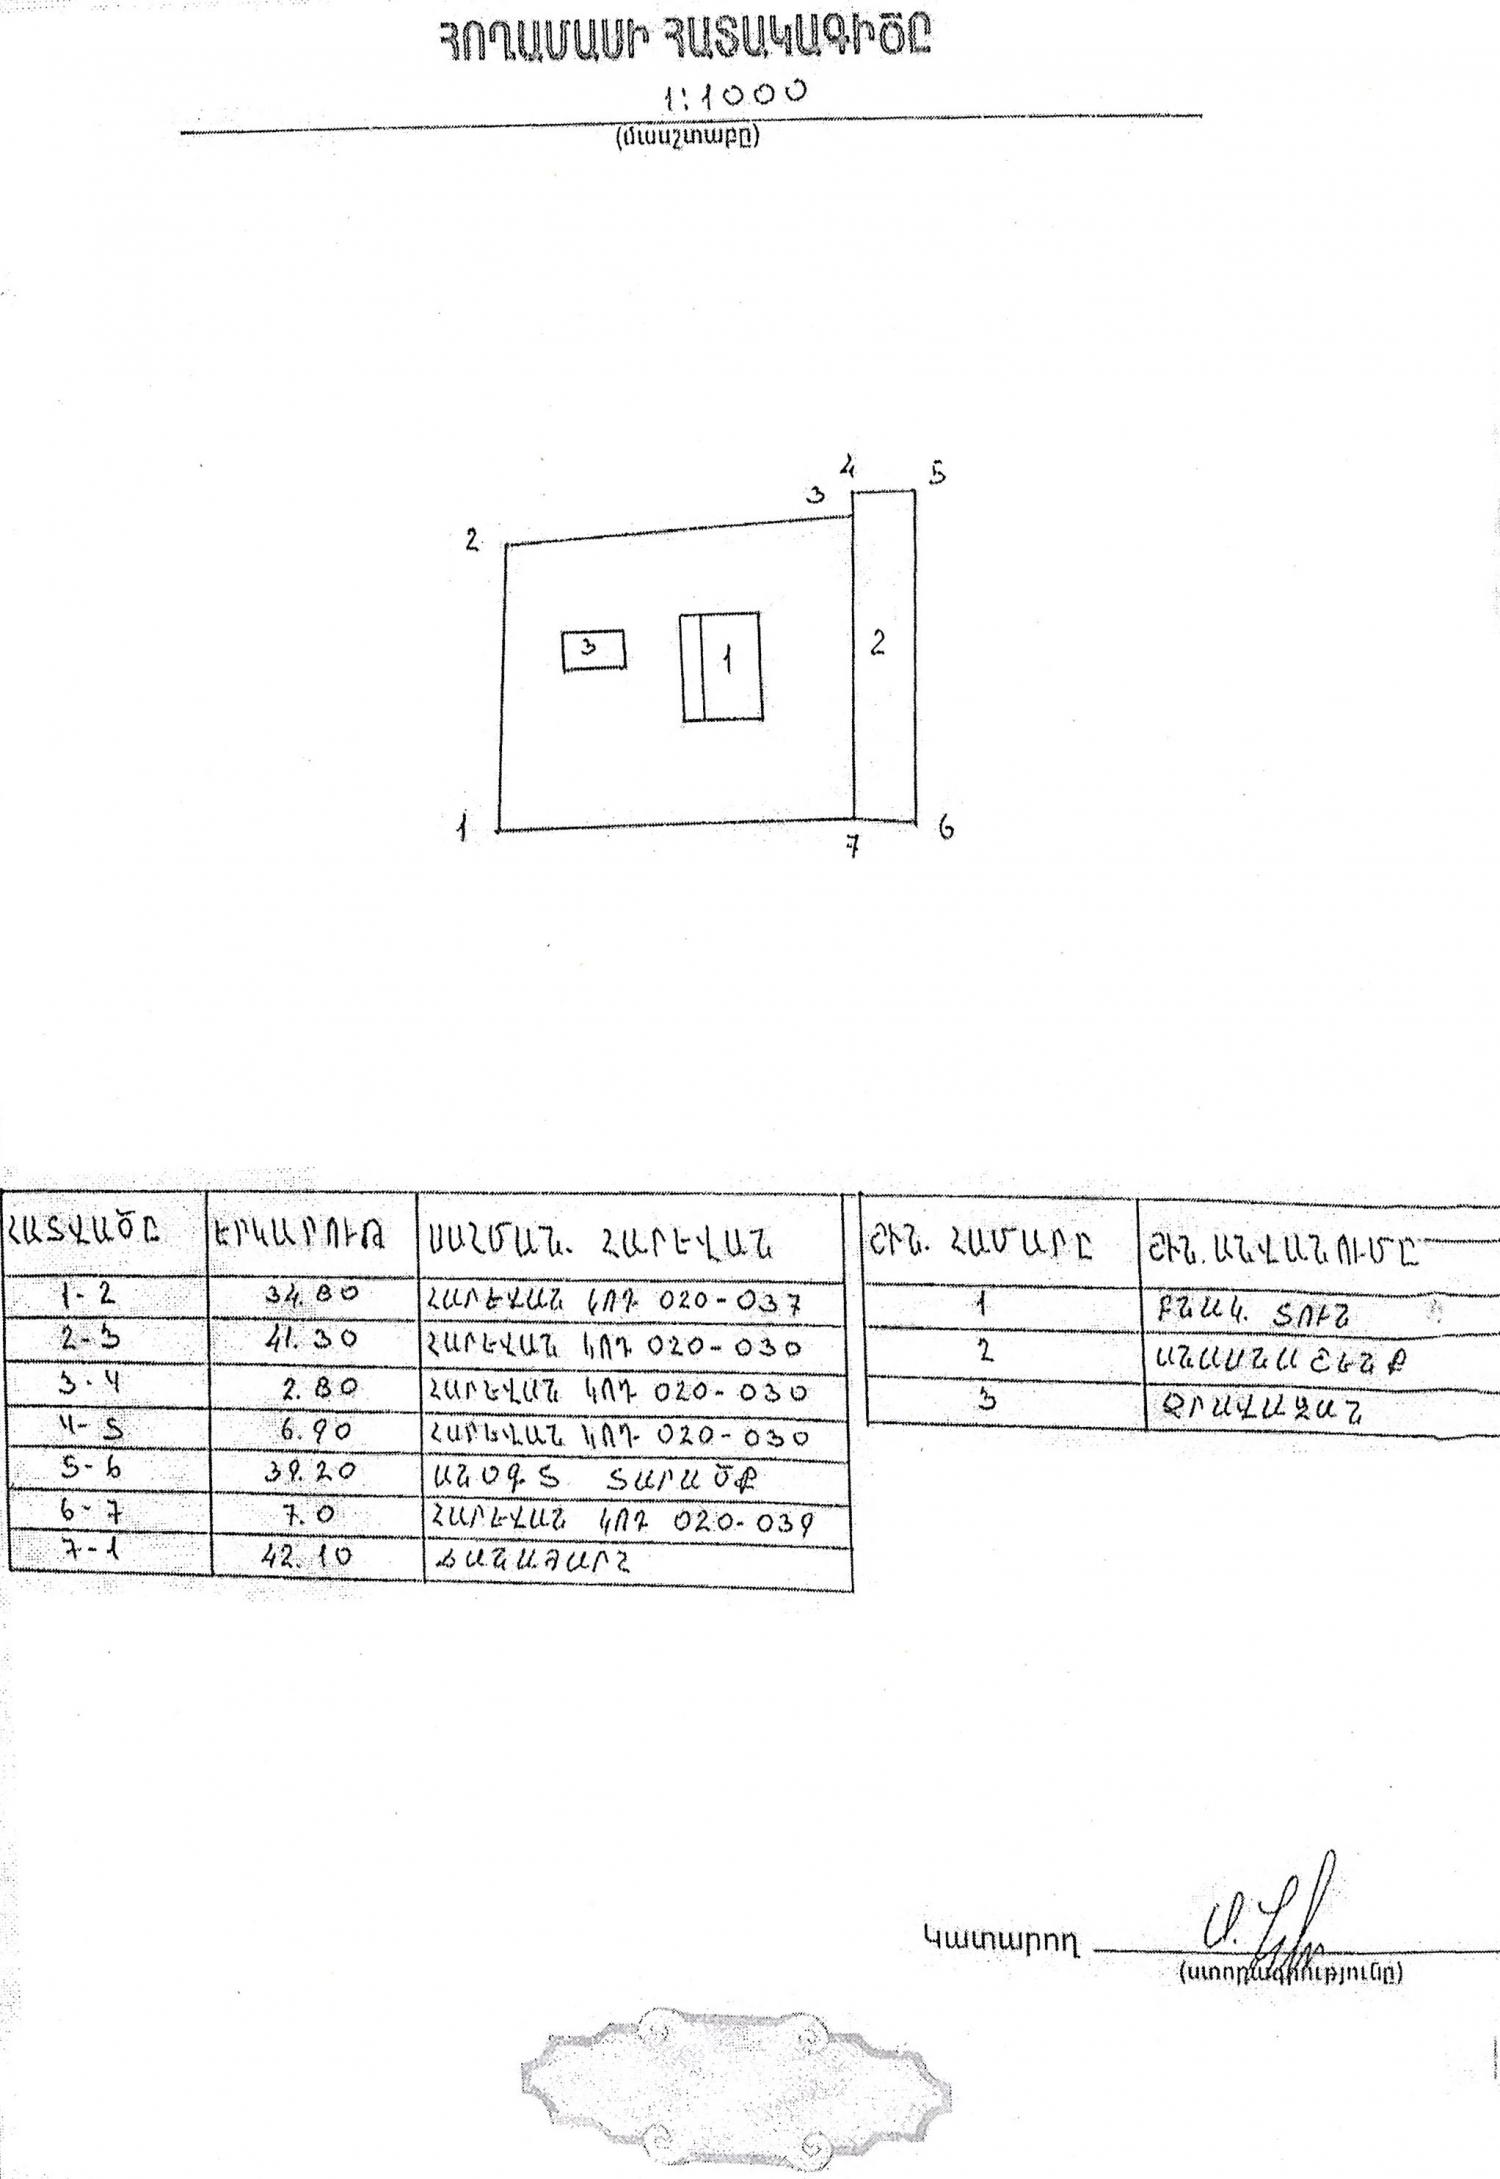 ՀՈՂԱՄԱՍԻ ՀԱՏԱԿԱԳԻԾԸ
1:1000
(մասշտաբը)
4 5
3
2
3 1 2
1 7 6
ՀԱՏՎԱԾԸ ԵՐԿԱՐՈՒԹ ՍԱՀՄԱՆ. ՀԱՐԵՎԱՆ
1-2 34.80 ՀԱՐԵՎԱՆ ԿՈԴ 020-037
2-3 41.30 ՀԱՐԵՎԱՆ ԿՈԴ 020-030
3-4 2.80 ՀԱՐԵՎԱՆ ԿՈԴ 020-030
4-5 6.90 ՀԱՐԵՎԱՆ ԿՈԴ 020-030
5-6 39.20 ԱՆՕԳՏ ՏԱՐԱԾՔ
6-7 7.0 ՀԱՐԵՎԱՆ ԿՈԴ 020-039
7-1 42.10 ՃԱՆԱՊԱՐՀ
ՇԻՆ. ՀԱՄԱՐԸ ՇԻՆ. ԱՆՎԱՆՈՒՄԸ
1 ԲՆԱԿ. ՏՈՒՆ
2 ԱՆԱՍՆԱՇԵՆՔ
3 ՋՐԱՎԱԶԱՆ
Կատարող
(ստորագրությունը)